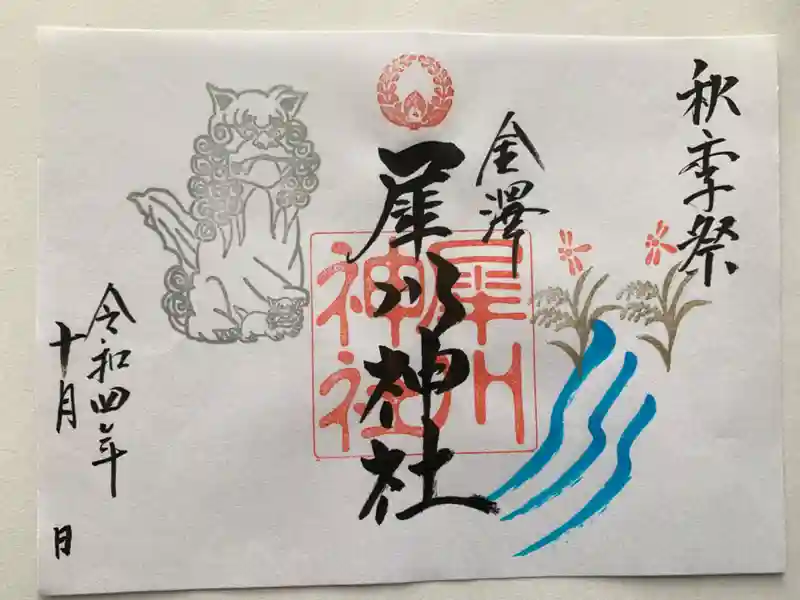 秋季祭
金澤
犀川神社
犀川
神社
令和四年
十月　日